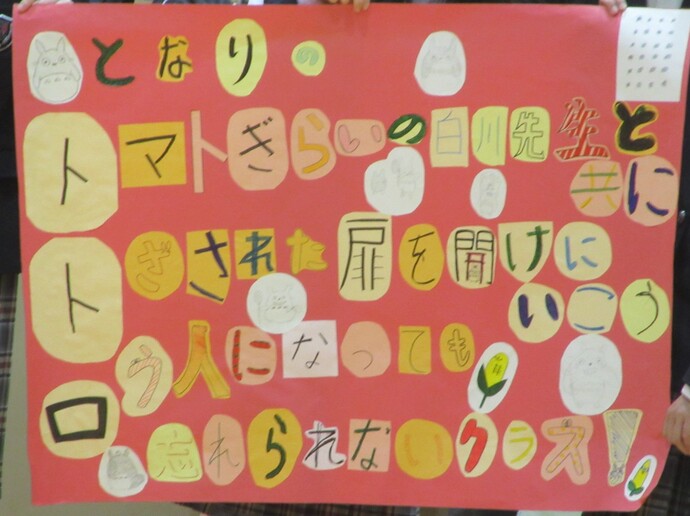 となりの
トマトぎらいの白川先生と
共に
トざされた扉を開けに
いこう
ロう人になっても
忘れられないクラス!